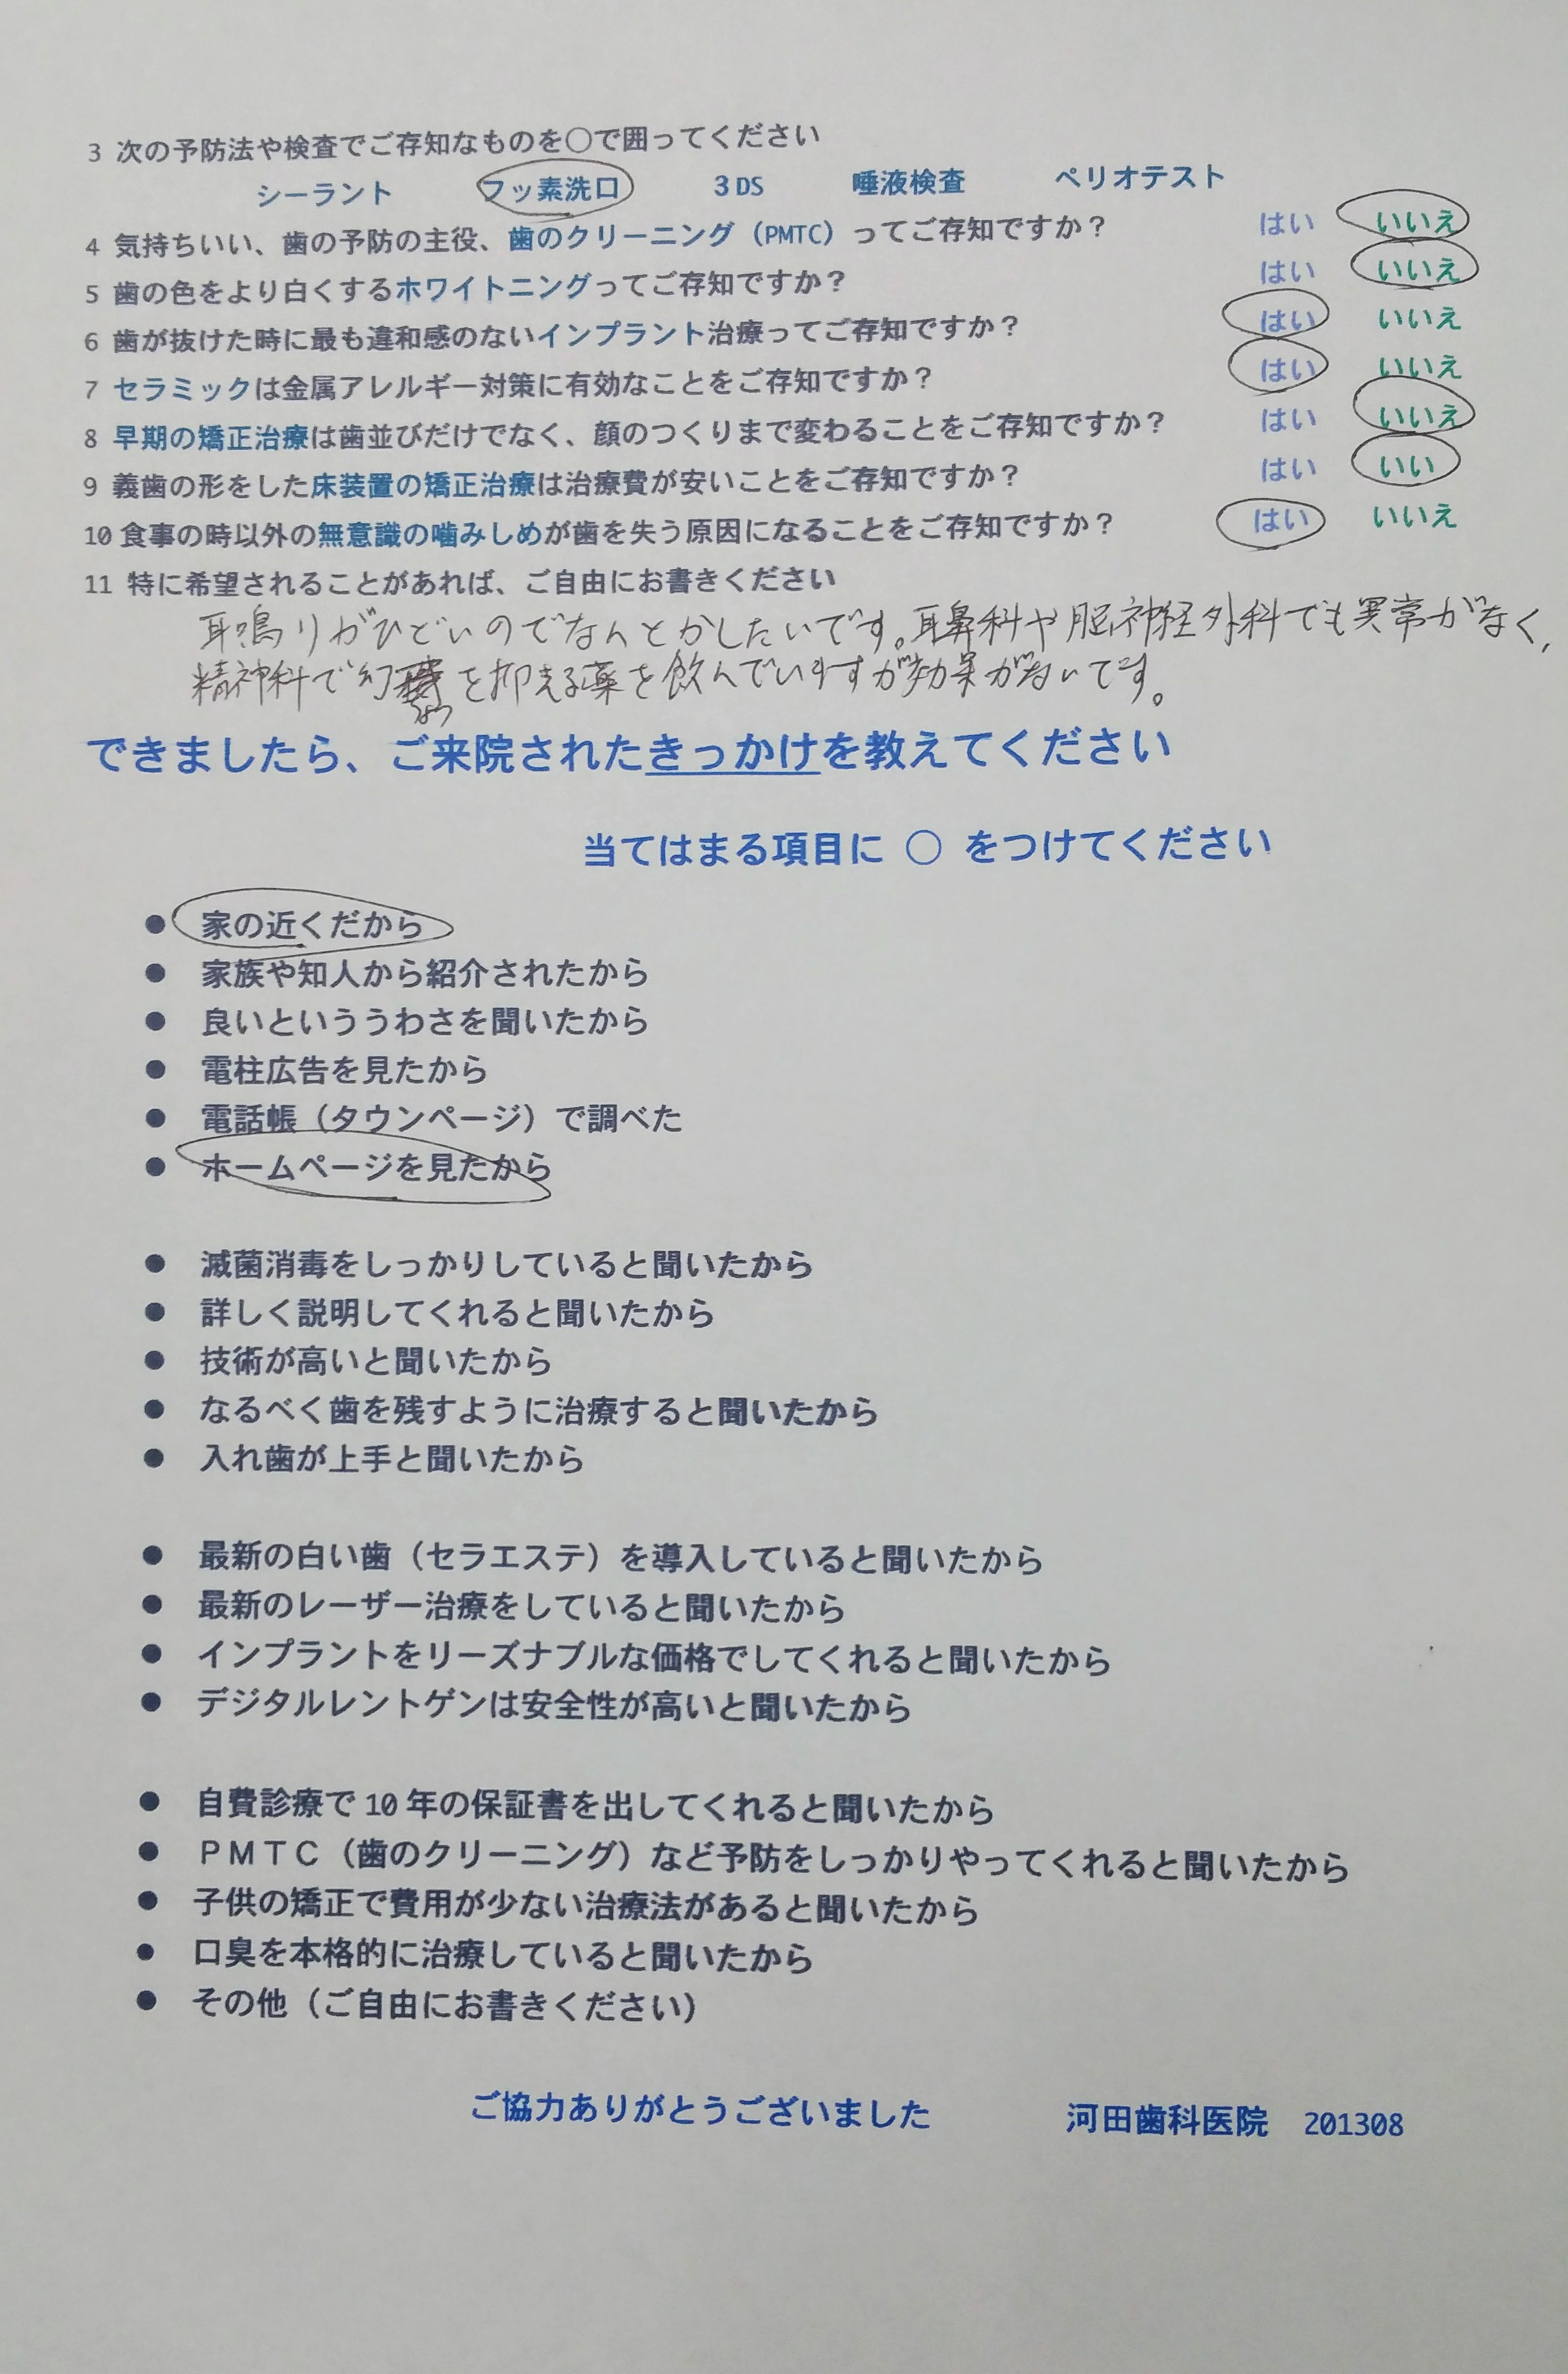 3 次の予防法や検査でご存知なものを○で囲ってください
シーラント フッ素洗口 3DS 唾液検査 ペリオテスト
4 気持ちいい、歯の予防の主役、歯のクリーニング（PMTC）ってご存知ですか？ はい いいえ
5 歯の色をより白くするホワイトニングってご存知ですか？ はい いいえ
6 歯が抜けた時に最も違和感のないインプラント治療ってご存知ですか？ はい いいえ
7 セラミックは金属アレルギー対策に有効なことをご存知ですか？ はい いいえ
8 早期の矯正治療は歯並びだけでなく、顔のつくりまで変わることをご存知ですか？ はい いいえ
9 義歯の形をした床装置の矯正治療は治療費が安いことをご存知ですか？ はい いい
10 食事の時以外の無意識の噛みしめが歯を失う原因になることをご存知ですか？ はい いいえ
11 特に希望されることがあれば、ご自由にお書きください
耳鳴りがひどいのでなんとかしたいです。耳鼻科や脳神経外科でも異常がなく、
精神科で幻 を抑える薬を飲んでいますが効果がないです。
できましたら、ご来院されたきっかけを教えてください
当てはまる項目に ○ をつけてください
● 家の近くだから
● 家族や知人から紹介されたから
● 良いといううわさを聞いたから
● 電柱広告を見たから
● 電話帳（タウンページ）で調べた
● ホームページを見たから
● 滅菌消毒をしっかりしていると聞いたから
● 詳しく説明してくれると聞いたから
● 技術が高いと聞いたから
● なるべく歯を残すように治療すると聞いたから
● 入れ歯が上手と聞いたから
● 最新の白い歯（セラエステ）を導入していると聞いたから
● 最新のレーザー治療をしていると聞いたから
● インプラントをリーズナブルな価格でしてくれると聞いたから
● デジタルレントゲンは安全性が高いと聞いたから
● 自費診療で10年の保証書を出してくれると聞いたから
● ＰＭＴＣ（歯のクリーニング）など予防をしっかりやってくれると聞いたから
● 子供の矯正で費用が少ない治療法があると聞いたから
● 口臭を本格的に治療していると聞いたから
● その他（ご自由にお書きください）
ご協力ありがとうございました 河田歯科医院 201308